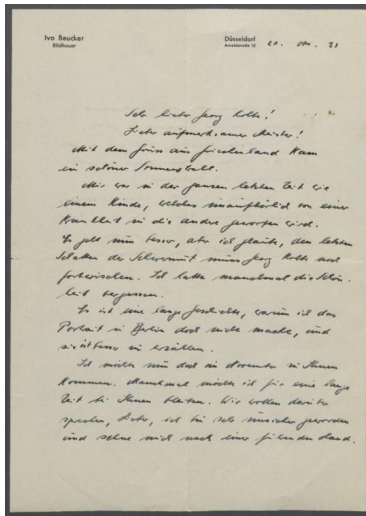 Ivo Beucker
Bildhauer
Düsseldorf
Arnoldstraße 12
20. Okt. 31
Sehr lieber Georg Kolbe!
Lieber aufmerksamer Meister!
Mit dem Gruss aus Griechenland kam
ein schöner Sonnenstrahl.
Mir war in der ganzen letzten Zeit wie
einem Kinde, welches unaufhörlich von einer
Krankheit in die andere geworfen wird.
Es geht nun besser, aber ich glaube, den letzten
Schatten der Schwermut muss Georg Kolbe noch
fortwischen. Ich hatte manchmal die Schön-
heit vergessen.
Es ist eine lange Geschichte, warum ich das
Portrait in Berlin doch nicht mache, und
sie ist besser zu erzählen.
Ich möchte nun doch im November zu Ihnen
kommen. Manchmal möchte ich für eine lange
Zeit bei Ihnen bleiben. Wir wollen darüber
sprechen, bitte, ich bin sehr unsicher geworden
und sehne mich nach einer führenden Hand.